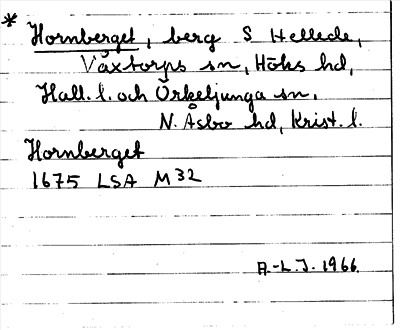 * Hornberget, berg S Hellede,
Våxtorps sn, Höks hd,
Hall. l. och Örkeljunga sn.
N. Åsbo hd, Krist. l.
Hornberget
1675 LSA M 32
A.-L. J. 1966